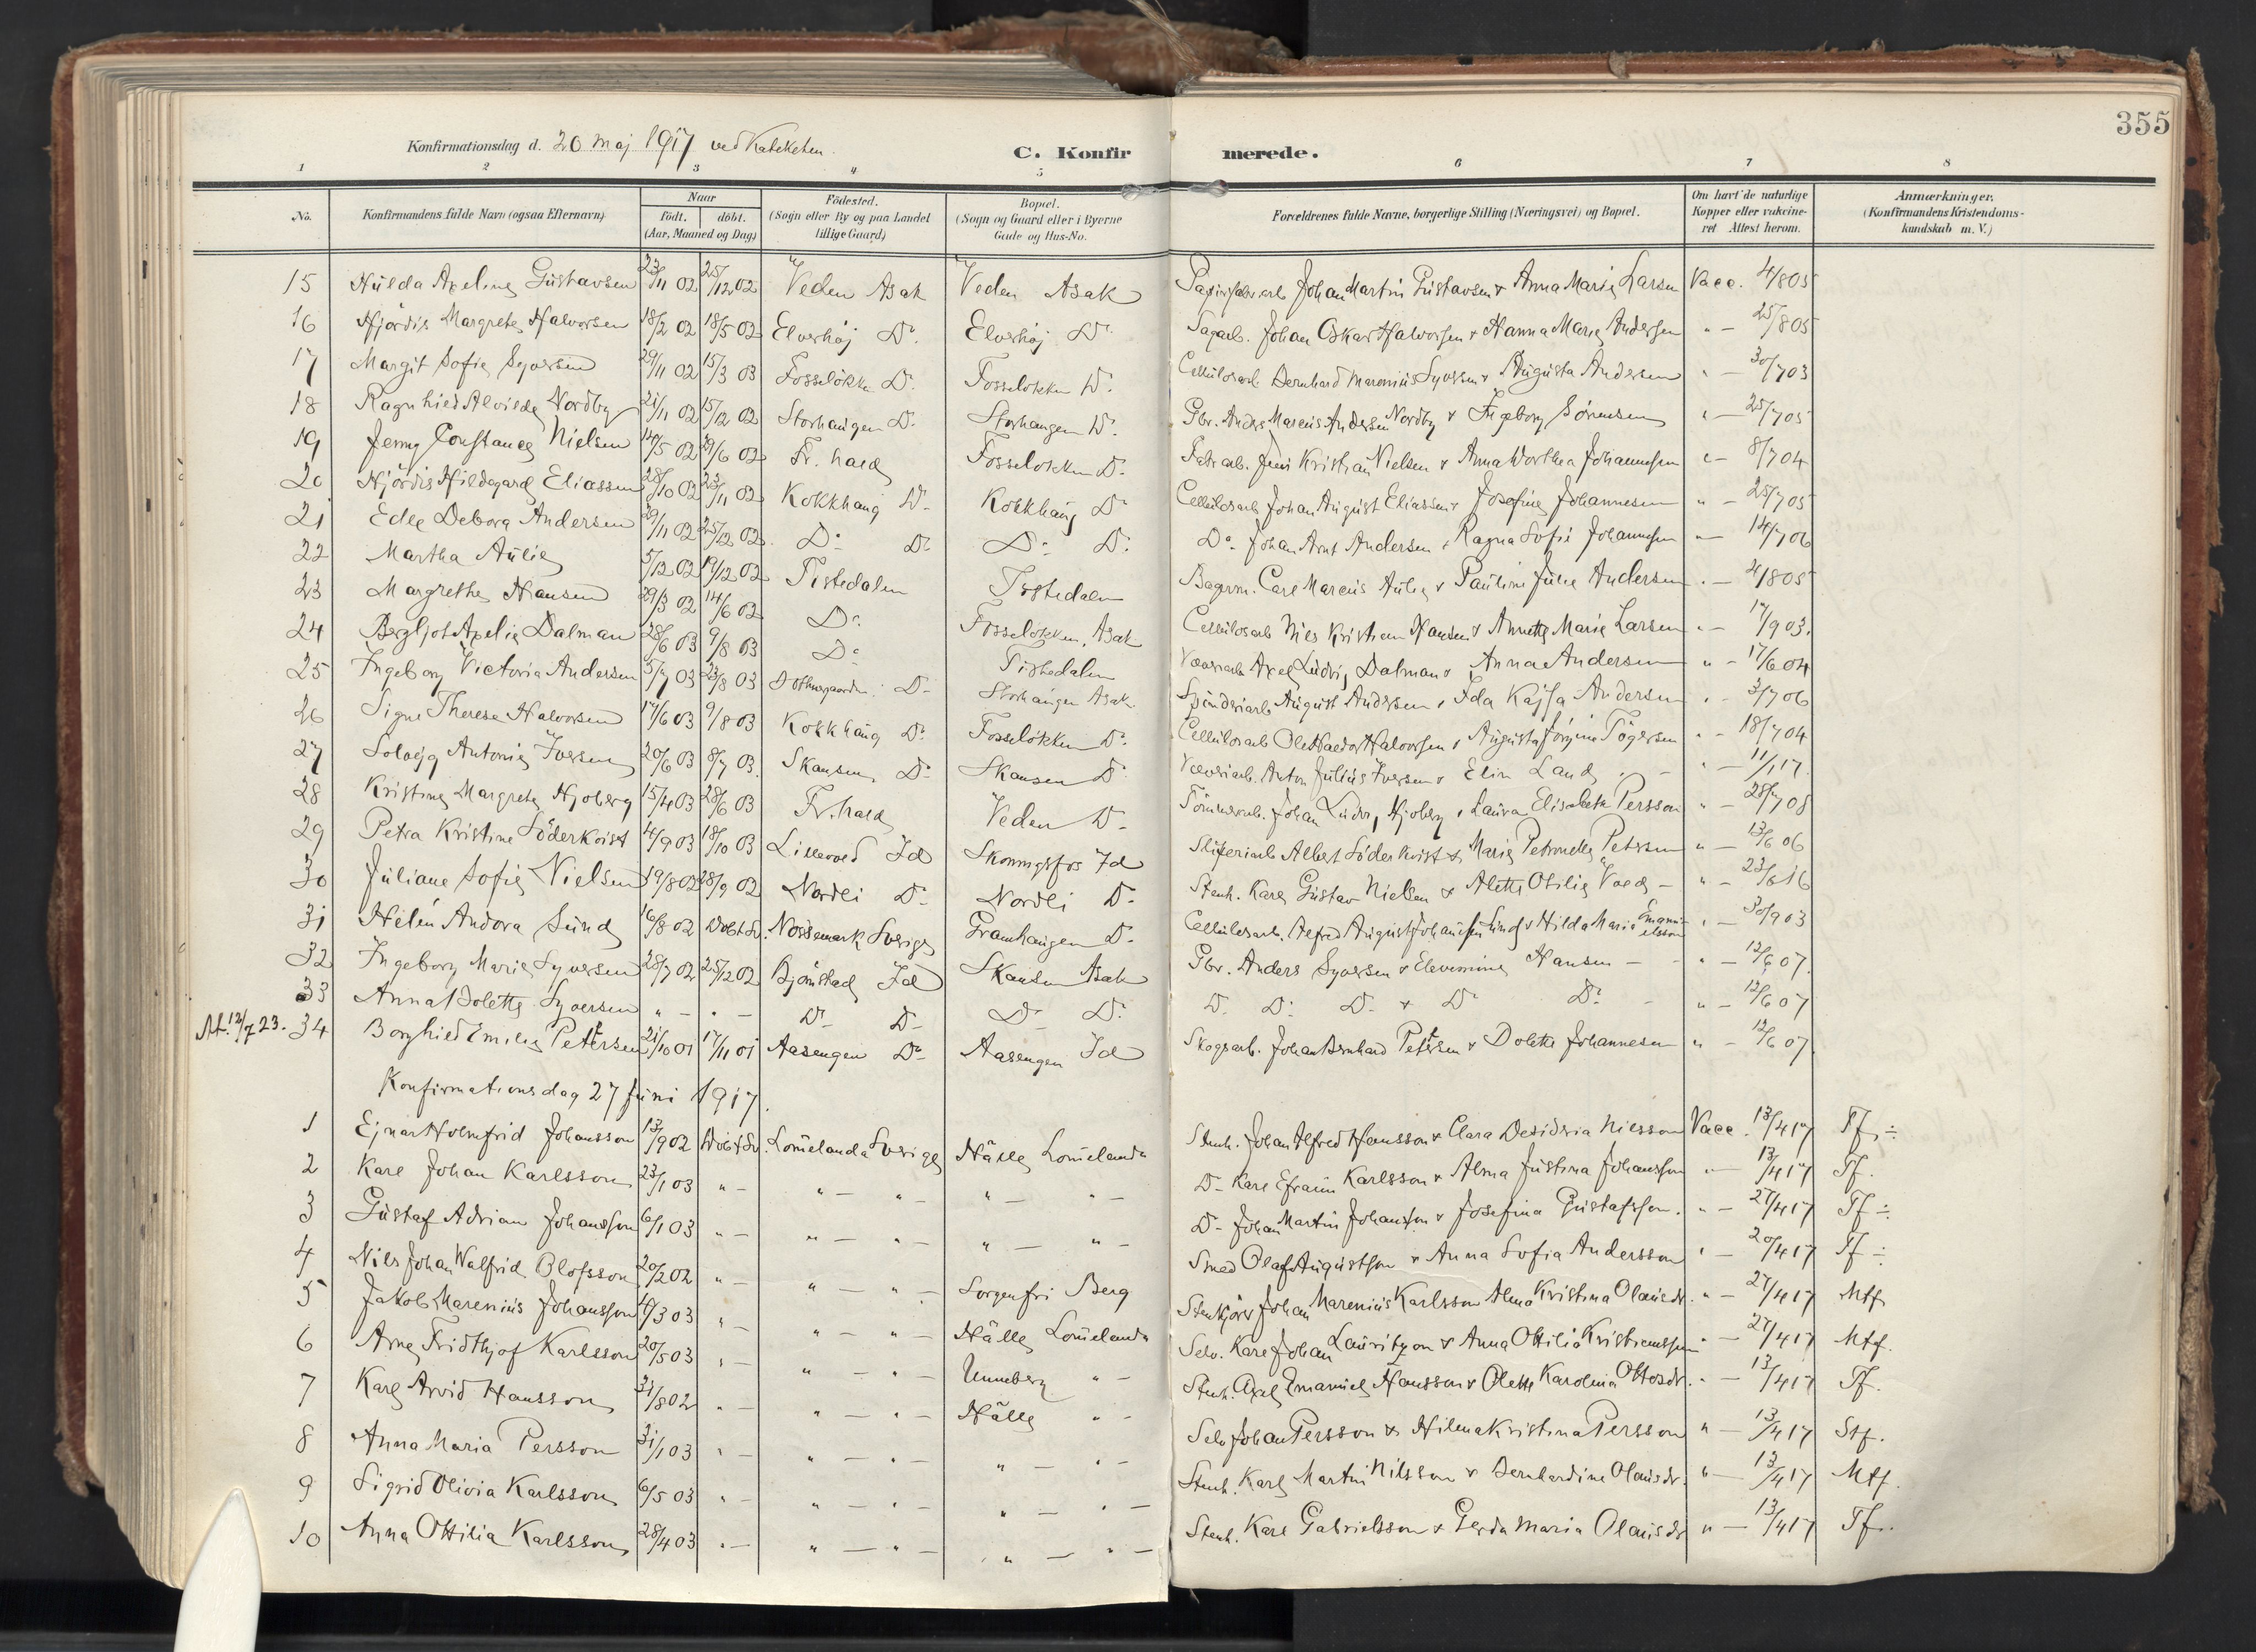 355
Konfirmationsdag d. 20 maj 1917 ved Kateketen.
C. Konfirmerede.
1 2 3 4 5 6 7 8
No. Konfirmandens fulde Navn (ogsaa Efternavn) Naar Födt. döbt. (Aar, Maaned og Dag) Födested. (Sogn eller By og paa Landet tillige Gaard) Bopæl. (Sogn og Gaard eller i Byerne Gade og Hus-No. Forældrenes fulde Navne, borgerlige Stilling (Næringsvei) og Bopæl. Om havt de naturlige Kopper eller vakcineret Attest herom. Anmærkninger. (Konfirmandens Kristendomskundskab m. V.)
15 Hulda Axeline Gustavsen 23/11 02 25/12 02 Veden Asak Veden Asak Johan Martin Gustavsen & Anna Marie Larsen Vacc. 4/8 05
16 Hjördis Margrethe Halvorsen 18/2 02 18/5 02 Elverhöj Do. Elverhöj Do. Sagarb. Johan Oskar Halvorsen & Hanna Marie Andersen " - 25/8 05
17 Margit Sofie Syversen 29/11 02 15/3 03 Fosselökka Do. Fosselökken Do. Cellulosarb. Bernhard Marenius Syversen & Augusta Andersen " - 30/7 03
18 Ragnhild Alvilde Nordby 21/11 02 15/12 02 Storhaugen Do. Storhaugen Do. Gbr. Anders Marcus Andersen Nordby & Ingeborg Sørensen " - 25/7 05
19 Jenny Constance Nielsen 14/5 02 29/6 02 Fr. hald Fosselökken Do. Fabr. arb. Jens Kristian Nielsen & Anna Dorthea Johannesen " - 8/7 04
20 Hjördis Hildegard Eliassen 28/10 02 23/11 02 Kokkhaug Do. Kokkhaug Do. Cellulosarb. Johan August Eliassen & Josefine Johannesen " - 25/7 05
21 Edle Debora Andersen 29/11 02 25/12 02 Do. Do. Do. Do. Do. Johan Arnt Andersen & Ragna Sofie Johannesen " - 14/7 06
22 Martha Aulie 5/12 02 19/12 02 Tistedalen Tistedalen Bagerm. Carl Marcus Aulie & Pauline Julie Andersen " - 4/8 05
23 Margrethe Hansen 29/3 02 14/6 02 Do. Fosselökken, Asak Cellulosarb Nils Kristian Hansen & Annette Marie Larsen " - 17/9 03.
24 Bergljot Axelie Dalman 28/6 03 9/8 03 Do. Tistedalen Væveriarb Axel Ludvig Dalman & Anna Andersen " - 17/6 04
25 Ingeborg Victoria Andersen 5/7 03 23/8 03 Do. Storhaugen Asak Spinderiarb August Andersen & Ida Kajsa Andersen " - 3/7 06
26 Signe Therese Halvorsen 17/6 03 9/8 03 Kokkhaug Do. Fosselökken Do. Cellulosarb Ole Halvorsen & Augusta Jörgine Tögersen " - 18/7 04
27 Solvejg Antonie Iversen 20/6 03 8/7 03. Skansen Do. Skansen Do. Væveriarb. Anton Julius Iversen & Elin Land " - 11/1 17.
28 Kristine Margrethe Hjoberg 15/4 03 28/6 03 Fr. hald Veden Do. Tömmerarb. Johan Ludv. Hjoberg & Laura Elisabeth Persson " - 28/7 08
29 Petra Kristine Söderkvist 4/9 03 18/10 03 Lilleoved Id Skonningsfos Id Sliperiarb Albert Söderkvist & Marie Petronelle Petersen " - 13/6 06
30 Juliane Sofie Nielsen 19/8 02 28/9 02 Nordli Do. Nordli Do. Stenh. Karl Gustav Nielsen & Alette Otilie Vold - " - 23/6 16
31 Helén Andora Sund 16/8 02 Döbt Sv. Nössemark Sverige Granhaugen Do. Cellulosarb. Alfred August Johansen Sund & Hilda Maria Emanuelsson " - 30/9 03
32 Ingeborg Marie Syversen 28/7 02 25/12 02 Björnstad Id Skansen Asak Gbr. Anders Syversen & Hansen - " - 12/6 07.
33 Anna Dolette Syversen " - " - Do. Do. Do. Do. D. Do. Do. & Do. Do. - " - 12/6 07
At. 12/7 23. 34 Borghild Emilie Pettersen 21/10 01 17/11 01 Aasengen Do. Aasengen Id Skogsarb. Johan Bernhard Pettersen & Dolette Johannesen " - 12/6 07.
Konfirmationsdag 27 juni 1917.
1 Ejnar Holmfrid Johansson 13/9 02 Döbt Sv. Lommelanda Sverige Hälle Lommelanda Stenh. Johan Alfred Hansson & Clara Desideria Nilsson Vacc. 13/4 17 Tf. ÷
2 Karl Johan Karlsson 23/1 03 " - " - " - " - " - D - Karl Efraim Karlsson & Alma Justina Johansson " - 13/4 17 Tf.
3 Gustaf Adrian Johansson 6/1 03 " - " - " - " - " - D - Johan Martin Johansson & Josefina Gustafsson. " - 27/4 17 Tf ÷
4 Nils Johan Walfrid Olofsson 20/2 02 " - " - " - Sorgenfri Berg Smed Olaf Augustsson & Anna Sofia Andersson " - 20/4 17 Tf ÷
5 Jakob Marenius Johansson 4/3 03 " - " - " - Hälle Lommelanda Stenkjörer Johan Marenius Karlsson Alma Kristina Olausdr. " - 27/4 17 Mtf
6 Arne Fridthjof Karlsson 20/5 03 " - " - " - Unneberg " - Selv. Karl Johan Lauritzon & Anna Ottilia Kristiansson " - 27/4 17 Mtf.
7 Karl Arvid Hansson 31/8 02 " - " - " - Hälle " - Stenh. Axel Emanuel Hansson & Olette Karolina Ottosdr. " - 13/4 17 Tf.
8 Anna Maria Persson 31/1 03 " - " - " - " - " - Selv Johan Persson & Hilma Kristina Persson " - 13/4 17 Stf.
9 Sigrid Olivia Karlsson 6/5 03 " - " - " - " - " - Stenh. Karl Martin Nilsson & Bernhardine Olausdr. " - 13/4 17 Mtf.
10 Anna Ottilia Karlsson 28/4 03 " - " - " - " - " - Stenh. Karl Gabrielsson & Gerda Maria Olausdr " - 13/4 17 Tf.